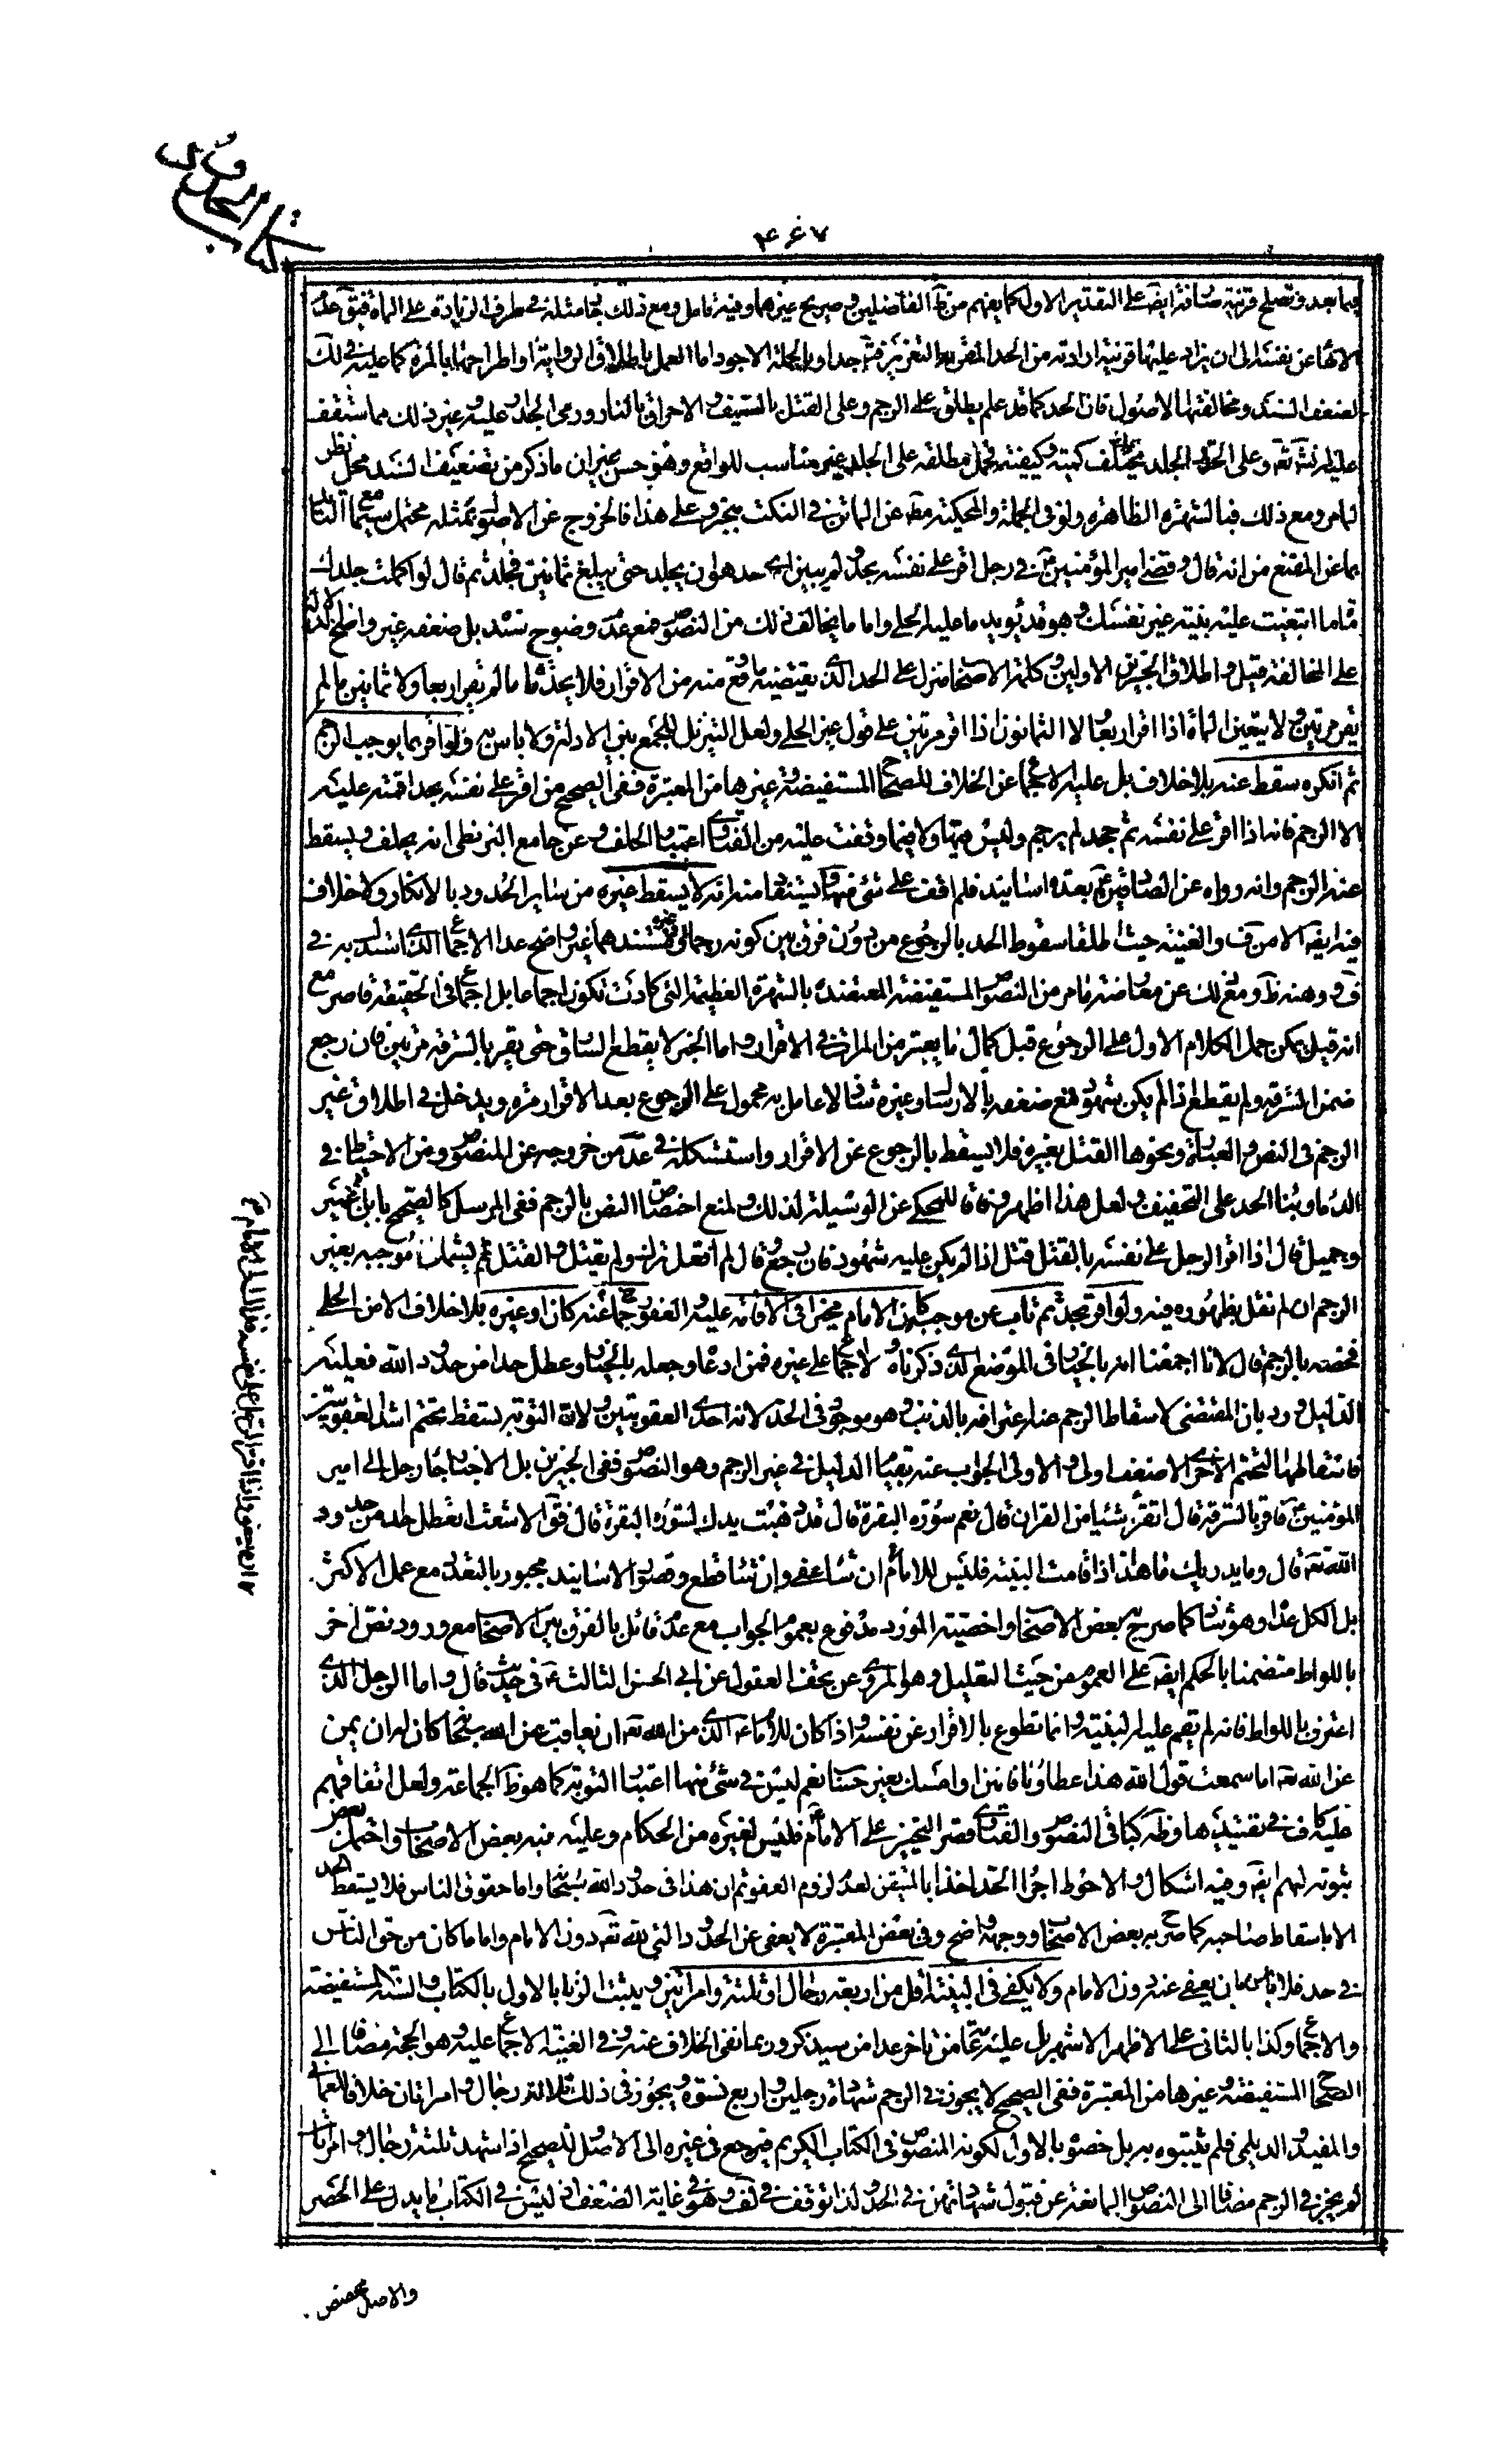 كتاب الحدود
۴۶۷
فيما بعد وتصلح قرينة ايضا على التقدير الاول كما يفهم من الفاضلين وصريح غيرهما وفيه تامل ومع ذلك في طرف الزيادة على الماة
الانهاء عن نفسه الى ان يزاد عليها قرينة ارادته من الحد التعزير جدا وبالجملة الاجود اما العمل باطلاق الرواية او اطراحها بالمرة كما عليه في لك
لضعف السند ومخالفتها الاصول فان الحد كما علم يطلق على الرجم وعلى القتل بالسيف والاحراق بالنار ورمى الجدار عليه وغير ذلك مما ستقف
عليه انش تعه وعلى الجلد يختلف كميته وكيفيته فحمل مطلقه على الجلد غير مناسب للواقع وهو حسن غير ان ما ذكر من تضعيف السند محل نظر
لما مر ومع ذلك فبالشهرة الظاهرة ولو في الجملة والمحكية عن الماتن في النكت منجبر وعلى هذا فالخروج عن الاصول بمثله محتمل سيما مع التايد
بما عن المقنع من انه قال وقضى امير المؤمنين ع في رجل اقر على نفسه بحد ولم يبين اى حد هو ان يجلد حتى يبلغ ثمانين فجلد ثم قال لو اكملت جلدك
ماة ما ابتغيت عليه بينة غير نفسك وهو قد يؤيد ما عليه الحلى واما ما يخالف ذلك من النصوص فمع عدم وضوح سنده بل ضعفه غير واضح الدلالة
على المخالفة قيل واطلاق الخبرين الاولين وكلمة الاصحاب منزل على الحد الذى يقتضيه ما وقع منه من الاقرار فلا يحد ماة ما لم يقر اربعا ولا ثمانين ما لم
يقر مرتين ولا يتعين الماة اذا اقر اربعا ولا الثمانون اذا اقر مرتين على قول غير الحلى ولعل التنزيل للجمع بين الادلة ولا باس به ولو اقر بما يوجب الرجم
ثم انكره سقط عنه بلا خلاف بل عليه الاجماع عن الخلاف للصحاح المستفيضة وغيرها من المعتبرة ففى الصحيح من اقر على نفسه بحد اقمته عليه
الا الرجم فانه اذا اقر على نفسه ثم جحد لم يرجم وليس فيها ولا فيما وقفت عليه من الفتاوى اعتبار الحلف وعن جامع البزنطى انه يحلف ويسقط
عنه الرجم وانه رواه عن الصادقين ع بعدة اسانيد فلم اقف على شئ منها ويستفاد منه انه لا يسقط غيره من ساير الحدود بالانكار ولا خلاف
فيه ايضه الا من ف والغنية حيث اطلقا سقوط الحد بالرجوع من دون فرق بين كونه رجما او غيره ومستندهما غير واضح عدا الاجماع الذى استدل به في
ف ووهنه ظ ومع ذلك عن معارضة ما مر من النصوص المستفيضة المعتضدة بالشهرة العظيمة التى كادت تكون اجماعا بل اجماع في الحقيقة قاصر مع
انه قيل يمكن حمل الكلام الاول على الرجوع قبل كمال ما يعتبر من المرات في الاقرار واما الخبر لا يقطع السارق حتى يقر بالسرقة مرتين فان رجع
ضمن السرقة ولم يقطع اذا لم يكن شهود فمع ضعفه بالارسال وغيره شاذ لا عامل به محمول على الرجوع بعد الاقرار مرة ويدخل في اطلاق غير
الرجم في النص والعبارة ونحوها القتل بغيره فلا يسقط بالرجوع عن الاقرار واستشكله في عد من خروجه عن المنصوص ومن الاحتياط في
الدماء وبناء الحد على التخفيف ولعل هذا اظهر وفاقا للمحكى عن الوسيلة لذلك ولمنع اختصاص النص بالرجم ففى المرسل كالصحيح بابن ابى عمير
وجميل قال اذا اقر الرجل على نفسه بالقتل قتل اذا لم يكن عليه شهود فان رجع وقال لم افعل ترك ولم يقتل والقتل يشمل موجبه بغير
الرجم ان لم نقل بظهوره فيه ولو اقر بحد ثم تاب عن موجبه كان الامام مخيرا في الاقامة عليه والعفو عنه رجما كان او غيره بلا خلاف الا من الحلى
فخصه بالرجم قال لانا اجمعنا انه بالخيار في الموضع الذى ذكرناه ولا اجماع على غيره فمن ادعاه وجعله بالخيار وعطل حدا من حدود الله فعليه
الدليل ورد بان المقتضى لاسقاط الرجم عنه اعترافه بالذنب وهو موجود في الحد لانه احدى العقوبتين ولان التوبة تسقط تحتم اشد العقوبتين
فاسقاطها لتحتم الاخرى الاضعف اولى والاولى الجواب عنه بقيام الدليل في غير الرجم وهو النصوص ففى الخبرين بل الاخبار جاء رجل الى امير
المؤمنين ع فاقر بالسرقة فقال اتقرء شيئا من القران قال نعم سورة البقرة قال قد وهبت يدك لسورة البقرة قال فقال الاشعث اتعطل حدا من حدود
الله تعه قال وما يدريك ما هذا اذا قامت البينة فليس للامام ان يعفو وان شاء عفى وان شاء قطع وقصور الاسانيد مجبور بالتعدد مع عمل الاكثر
بل الكل عداه وهو شاذ كما صرح به بعض الاصحاب واخصية المورد مدفوع بعموم الجواب مع عدم قائل بالفرق بين الاصحاب مع ورود نص اخر
باللواط متضمنا بالحكم ايضه على العموم من حيث التعليل وهو المروى عن تحف العقول عن ابى الحسن الثالث ع في حديث قال واما الرجل الذى
اعترف باللواط فانه لم يقم عليه البينة وانما تطوع بالاقرار عن نفسه واذا كان للامام الذى من الله تعه ان يعاقب عن الله سبحانه كان له ان يمن
عن الله تعه اما سمعت قول الله هذا عطاؤنا فامنن او امسك بغير حساب نعم ليس في شئ منها اعتبار التوبة كما هو ظ الجماعة ولعل اتفاقهم
عليه كاف في تقييدها وظه كباقى النصوص والفتاوى قصر التخيير على الامام ع فليس لغيره من الحكام وعليه نبه بعض الاصحاب واحتمل بعض
ثبوته لهم ايضه وفيه اشكال والاحوط اجراء الحد اخذا بالمتيقن لعدم لزوم العفو ثم ان هذا في حدود الله سبحانه واما حقوق الناس فلا يسقط الحد
الا باسقاط صاحبه كما صرح به بعض الاصحاب ووجهه واضح وفي بعض المعتبرة لا يعفى عن الحدود التى لله تعه دون الامام واما ما كان من حق الناس
في حد فلا باس بان يعفى عنه دون الامام ولا يكفى في البينة اقل من اربعة رجال او ثلثة وامراتين ويثبت الزنا بالاول بالكتاب والسنة المستفيضة
والاجماع وكذا بالثانى على الاظهر الاشهر بل عليه عامة من تاخر عدا من سيذكر وربما نفى الخلاف عنه وفي الغنية الاجماع عليه وهو الحجة مضافا الى
الصحاح المستفيضة وغيرها من المعتبرة ففى الصحيح لا يجوز في الرجم شهادة رجلين واربع نسوة ويجوز في ذلك ثلاثة رجال وامراتان خلافا للعمانى
والمفيد والديلمى فلم يثبتوه به بل خصوه بالاول لكونه المنصوص في الكتاب الكريم فيرجع في غيره الى الاصل وللصحيح اذا شهد ثلثة رجال وامراتان
لم يجز في الرجم مضافا الى النصوص المانعة عن قبول شهادتهن في الحدود لذا توقف في لف وهو في غاية الضعف اذ ليس في الكتاب ما يدل على الحصر
والاصل مخصص